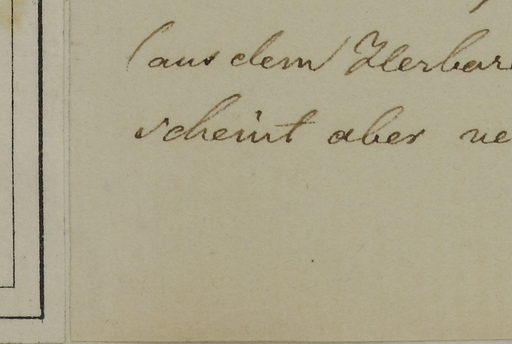 (aus dem Herbar
scheint aber ne